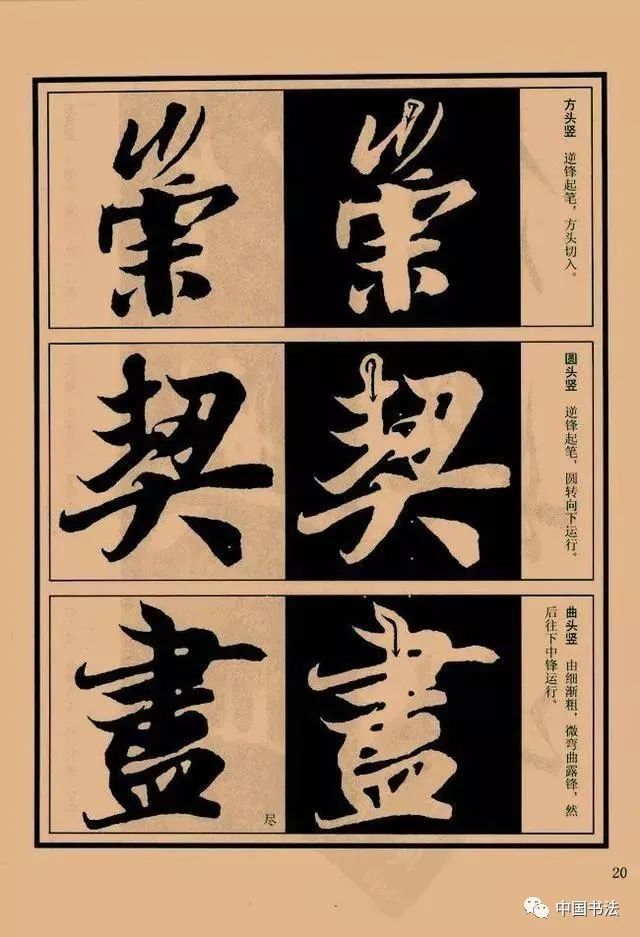 方头竖 逆锋起笔，方头切入。
崇
崇
圆头竖 逆锋起笔，圆转向下运行。
契
契
曲头竖 由细渐粗，微弯曲露锋，然
后往下中锋运行。
盡
盡
尽
20
中国书法